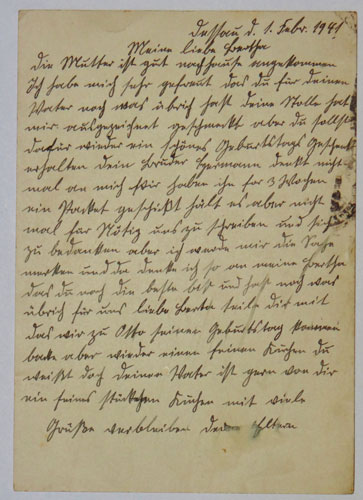 Dessau d. 1. Febr. 1941
Meine liebe Bertha
Die Mutter ist gut nachhause angekommen
Ich habe mich sehr gefreut das du für deinen
Vater noch was übrich hast deine Stolle hat
mir ausgezeichnet geschmeckt aber du sollst
dafür wieder ein schönes Geburtstags Geschenk
erhalten dein Bruder Hermann denkt nicht
mal an mich Wir haben ihn for 3 Wochen
ein Packet geschickt hält es aber nicht
mal für Nötig uns zu schreiben und sich
zu bedanken aber ich werde mir die Sache
merken und da denke ich so an meine Bertha
das du noch die beste bist und hast noch was
übrich für uns liebe Berta teile dir mit
das wir zu Otto seinen Geburtstag kommen
backe aber wieder einen feinen Kuchen du
weißt doch deinen Vater ist gern von dir
ein feines stückchen Kuchen mit viele
Grüße verbleiben deine Eltern